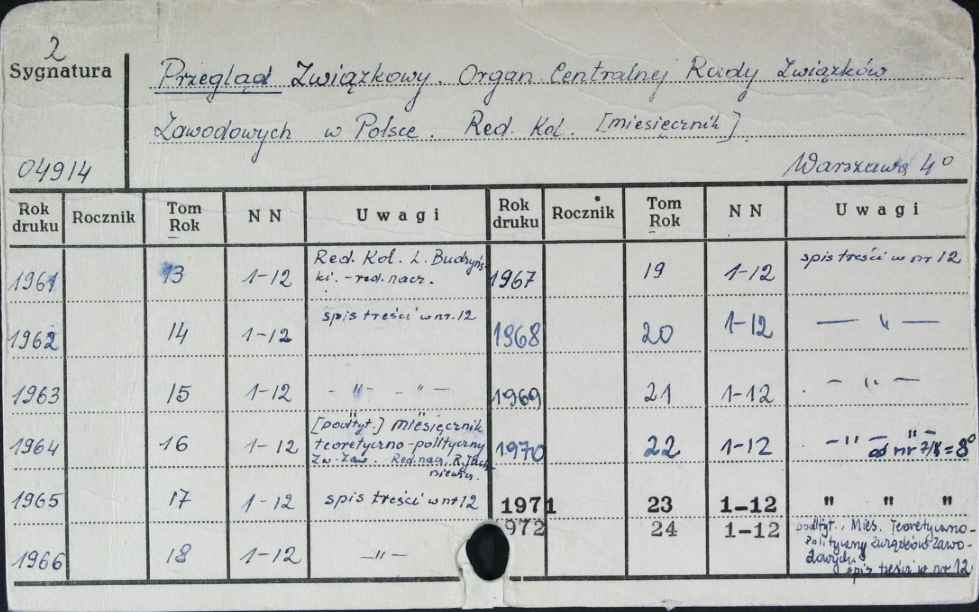 2
Sygnatura
Przegląd Związkowy. Organ Centralnej Rady Związków
Zawodowych w Polsce. Red. Kol. [miesięcznik]
04914
Warszawa 4°
Rok druku Rocznik Tom Rok N N Uwagi Rok druku Rocznik Tom Rok N N Uwagi
1961 13 1-12 Red. Kol. L. Budzyń-
ki. - red. nacz.
1967 19 1-12 spis treści w nr 12
1962 14 1-12 spis treści w nr. 12
1968 20 1-12 — " —
1963 15 1-12 - " - - " -
1969 21 1-12 - " -
1964 16 1-12 [podtyt.] miesięcznik
teoretyczno-polityczny
Zw. Zaw. Red. nacz. R.
1970 22 1-12 - " - - " -
od nr 7/8 = 8°
1965 17 1-12 spis treści w nr 12
1971 23 1-12 " " "
1966 18 1-12 - " -
1972 24 1-12 podtyt. Mies. Teoretyczno-
Polityczny Związków Zawo-
dowych
spis treści w nr 12